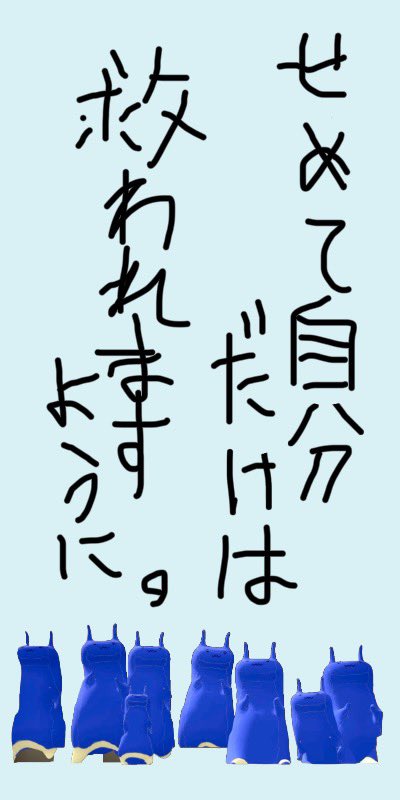 せめて自分
だけは
救われます
ように。